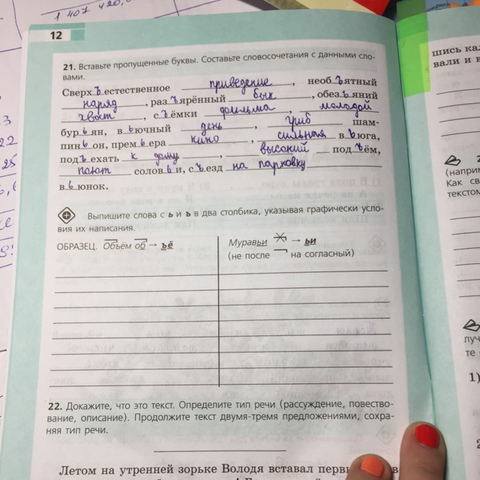 12
21. Вставьте пропущенные буквы. Составьте словосочетания с данными сло-
вами.
Сверхъестественное приведение, необъятный
наряд, разъярённый бык, обезьяний
хвост, съёмки фильма, молодой
бурьян, вьючный день, гриб шам-
пиньон, премьера кино, сильная вьюга,
подъехать к дому, высокий подъём,
поют соловьи, съезд на парковку
вьюнок.
Выпишите слова с ь и ъ в два столбика, указывая графически усло-
вия их написания.
ОБРАЗЕЦ. Объём об → ъё
Муравьи → ьи
(не после на согласный)
22. Докажите, что это текст. Определите тип речи (рассуждение, повество-
вание, описание). Продолжите текст двумя-тремя предложениями, сохра-
няя тип речи.
Летом на утренней зорьке Володя вставал
шись
вали и в
(напри
Как св
текстом
луч
те
1)